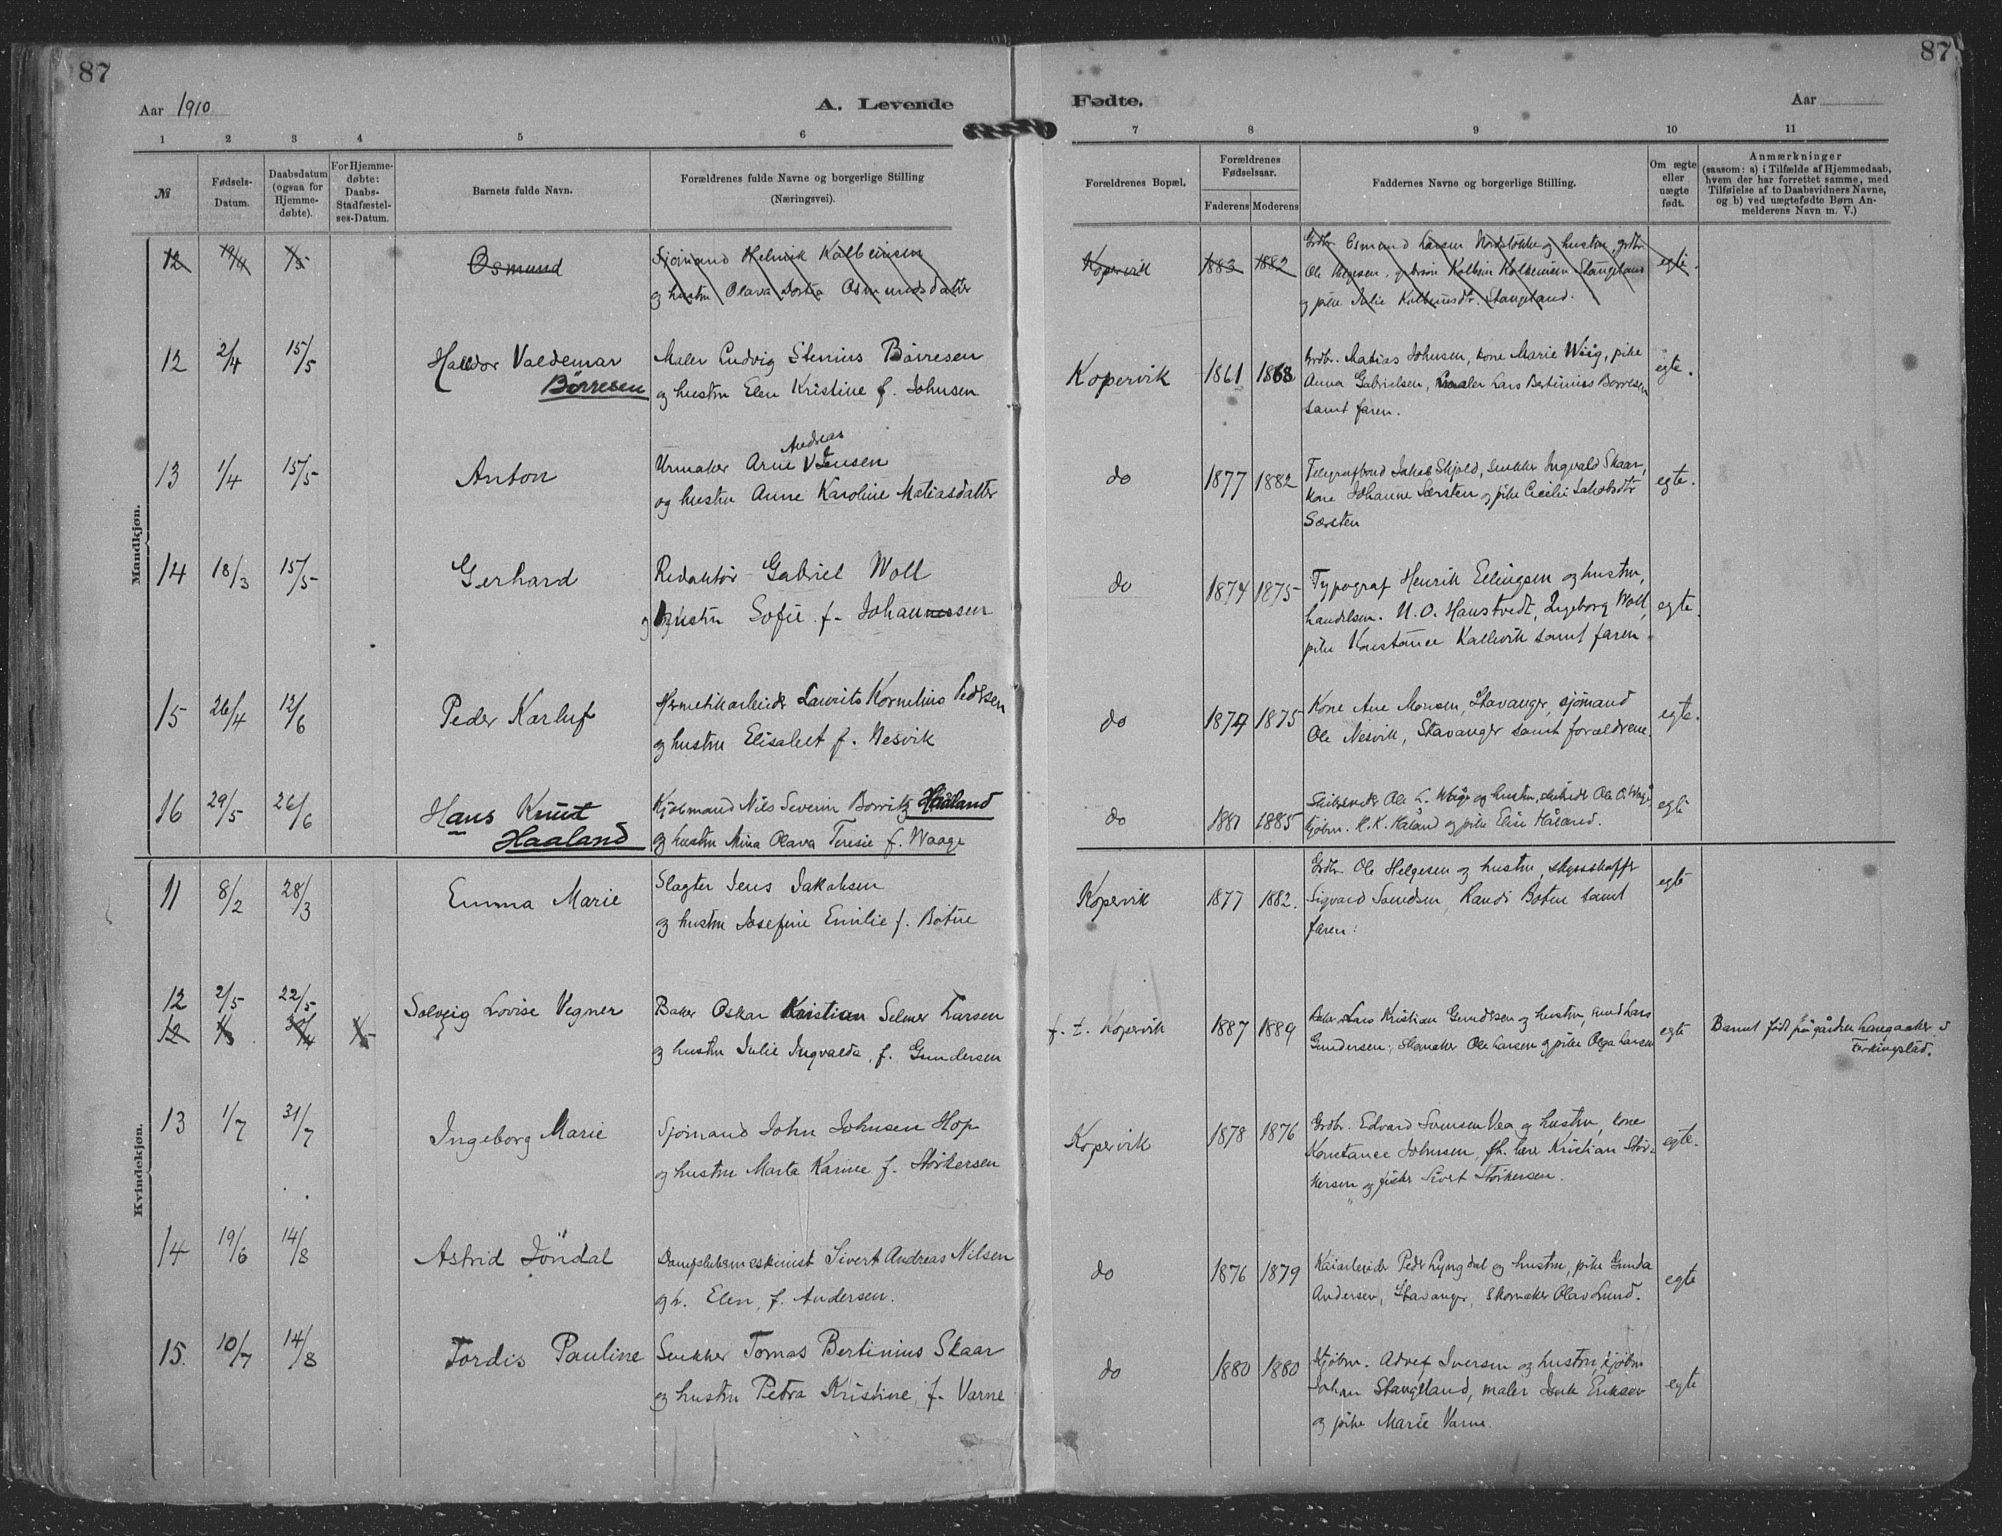 87
87
Aar 1910
A. Levende
Fødte.
Aar
1 2 3 4 5 6 7 8 9 10 11
№
Fødsels-
Datum.
Daabsdatum
(ogsaa for
Hjemme-
døbte).
For Hjemme-
døbte:
Daabs-
Stadfæstel-
ses-Datum.
Barnets fulde Navn.
Forældrenes fulde Navne og borgerlige Stilling
(Næringsvei).
Forældrenes Bopæl.
Forældrenes
Fødselsaar.
Faderens Moderens
Faddernes Navne og borgerlige Stilling.
Om ægte
eller
uægte
født.
Anmærkninger
(saasom: a) i Tilfælde af Hjemmedaab,
hvem der har forrettet samme, med
Tilføielse af to Daabsvidners Navne,
og b) ved uægtefødte Børn An-
melderens Navn m. V.)
Mandkjøn.
12 19/4 Osmund
Sjømand Helmik Kolbeinsen
og hustru Olava Osmundsdatter
Kopervik 1883 1882
Grdbr. Osmund Larsen og hustru, grdbr.
Ole Helgesen, Kolbein Kolbeinsen Stangeland
og pike Julie Kolbeinsdtr. Stangeland.
egte.
12 2/4 15/5 Halvdor Valdemar
Børresen
Maler Ludvig Stenius Børresen
og hustru Elen Kristine f. Johnsen
Kopervik 1861 1868
Grdbr. Matias Johnsen, kone Marie Wiig, pike
Anna Gabrielsen, maler Lars Bertinius Børresen
samt faren.
egte.
13 1/4 15/5 Anton
Andreas
Urmaker Arne Jensen
og hustru Anne Karoline Matiasdatter
do 1877 1882
Telegrafbud Jakob Skjold, snekker Ingvald Skaar,
kone Johanne Sørsten og pike Cecilie Jakobsdtr
Sørsten
egte.
14 18/3 15/5 Gerhard
Redaktør Gabriel Woll
og hustru Sofie f. Johannessen
do 1874 1875
Typograf Henrik Ellingsen og hustru,
handelsm. N. O. Haustvedt, Ingeborg Woll,
pike Konstance Kallevik samt faren.
egte.
15 26/4 12/6 Peder Karluf
Hermetikarbeider Laurits Kornelius Pedersen
og hustru Elisabet f. Nesvik
do 1874 1875
Kone Ane Monsen, Stavanger, sjømand
Ole Nesvik, Stavanger samt forældrene.
egte.
16 29/5 26/6 Hans Knut
Haaland
Kjøbmand Nils Severin Borritz Haaland
og hustru Mina Olava Teresie f. Waage
do 1881 1885
Ole L. Waage og hustru, Ole O. Waage
kjøbm. H. K. Håland og pike Elise Håland.
egte
Kvindekjøn.
11 8/2 28/3 Emma Marie
Slagter Jens Jakobsen
og hustru Josefine Emilie f. Botne
Kopervik 1877 1882.
Grdbr. Ole Helgesen og hustru, skysskaffer
Sigvard Samdsen, Randi Boten samt
faren.
egte
12 2/5 22/5 Solveig Lovise Vegner
12
Baker Oskar Kristian Selmer Larsen
og hustru Julie Ingvalda, f. Gundersen
f. t. Kopervik 1887 1889
Lars Kristian Gundersen og hustru,
Gundersen, skomaker Ole Larsen og pike Olga Larsen
egte
Barnet født på gården Langaaker i
Ferkingstad.
13 1/7 31/7 Ingeborg Marie
Sjømand John Johnsen Hop
og hustru Marta Karine f. Størkersen
Kopervik 1878 1876
Grdbr. Edvard Svensen Vea og hustru, kone
Konstance Johnsen, fh. Kristian Stør-
kersen og fisker Sivert Størkersen.
egte.
14 19/6 14/8 Astrid Jøndal
Dampskibsmaskinist Sivert Andreas Nilsen
og h. Elen, f. Andersen.
do 1876 1879
Kaiarbeider Peder Lyngdal og hustru, pike Gunda
Andersen, Stavanger, skomaker Olav Lund.
egte
15. 10/7 14/8 Tordis Pauline
Snekker Tomas Bertinius Skaar
og hustru Petra Kristine f. Varne
do 1880 1880
Kjøbm. Adolf Iversen og hustru, kjøbm
Johan Stangeland, maler Eriksen
og pike Marie Varne.
egte